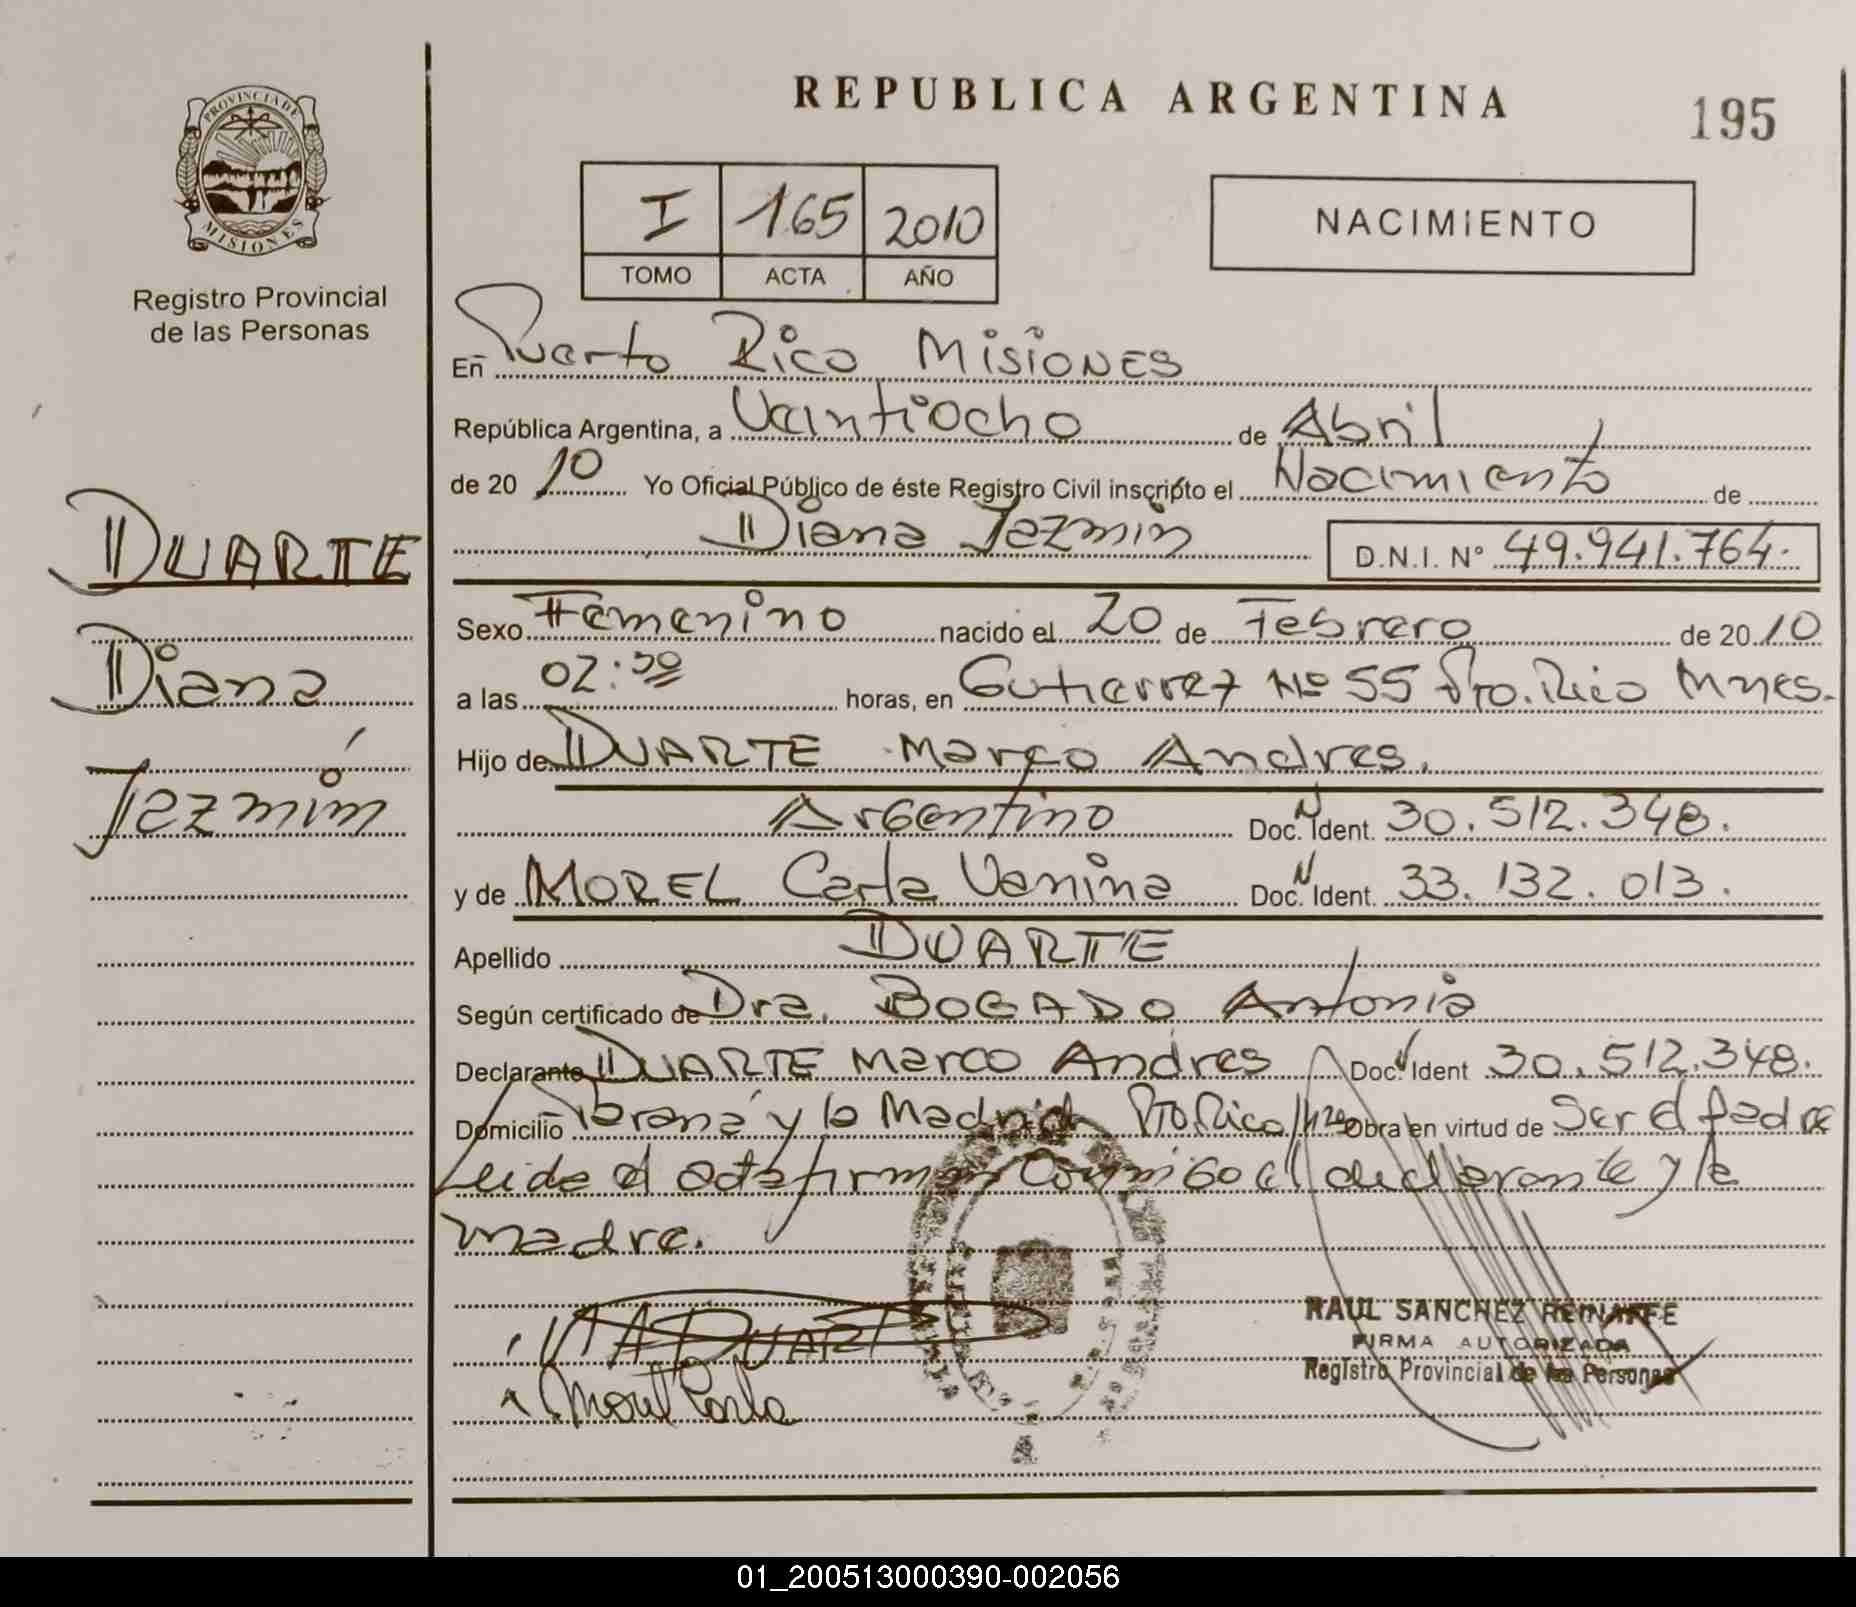 PROVINCIA DE
MISIONES
Registro Provincial
de las Personas
DUARTE
Diana
Jazmín
REPUBLICA ARGENTINA
195
I 165 2010
TOMO ACTA AÑO
NACIMIENTO
En Puerto Rico Misiones
República Argentina, a Veintiocho de Abril
de 20 10 Yo Oficial Público de éste Registro Civil inscripto el Nacimiento de
Diana Jazmin D.N.I. Nº 49.941.764.
Sexo Femenino nacido el 20 de Febrero de 20 10
a las 02:30 horas, en Gutierrez Nº 55 Pto. Rico Mnes.
Hijo de DUARTE Marco Andres.
Argentino Doc. N Ident. 30.512.348.
y de MOREL Carla Vanina Doc. N Ident. 33.132.013.
Apellido DUARTE
Según certificado de Dra. BOGADO Antonia
Declarante DUARTE Marco Andres Doc. Ident 30.512.348.
Domicilio Paraná y la Madrid Pto Rico Obra en virtud de Ser el padre
Leida el acta firman Conmigo el declarante y la
madre.
M A DUARTE
Morel Carla
RAUL SANCHEZ REINAFFE
FIRMA AUTORIZADA
Registro Provincial de las Personas
01_200513000390-002056